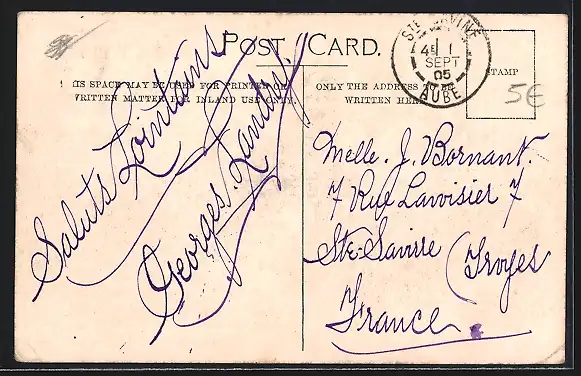 POST CARD.
THIS SPACE MAY BE USED FOR PRINTED OR
WRITTEN MATTER FOR INLAND USE ONLY.
ONLY THE ADDRESS
WRITTEN HERE
STAMP
STE SAVINE
4E 1
SEPT
05
AUBE
5€
Saluts Lointains
Georges Landry
Melle. J. Bornant.
7 Rue Lavoisier 7
Ste-Savine (Troyes
France